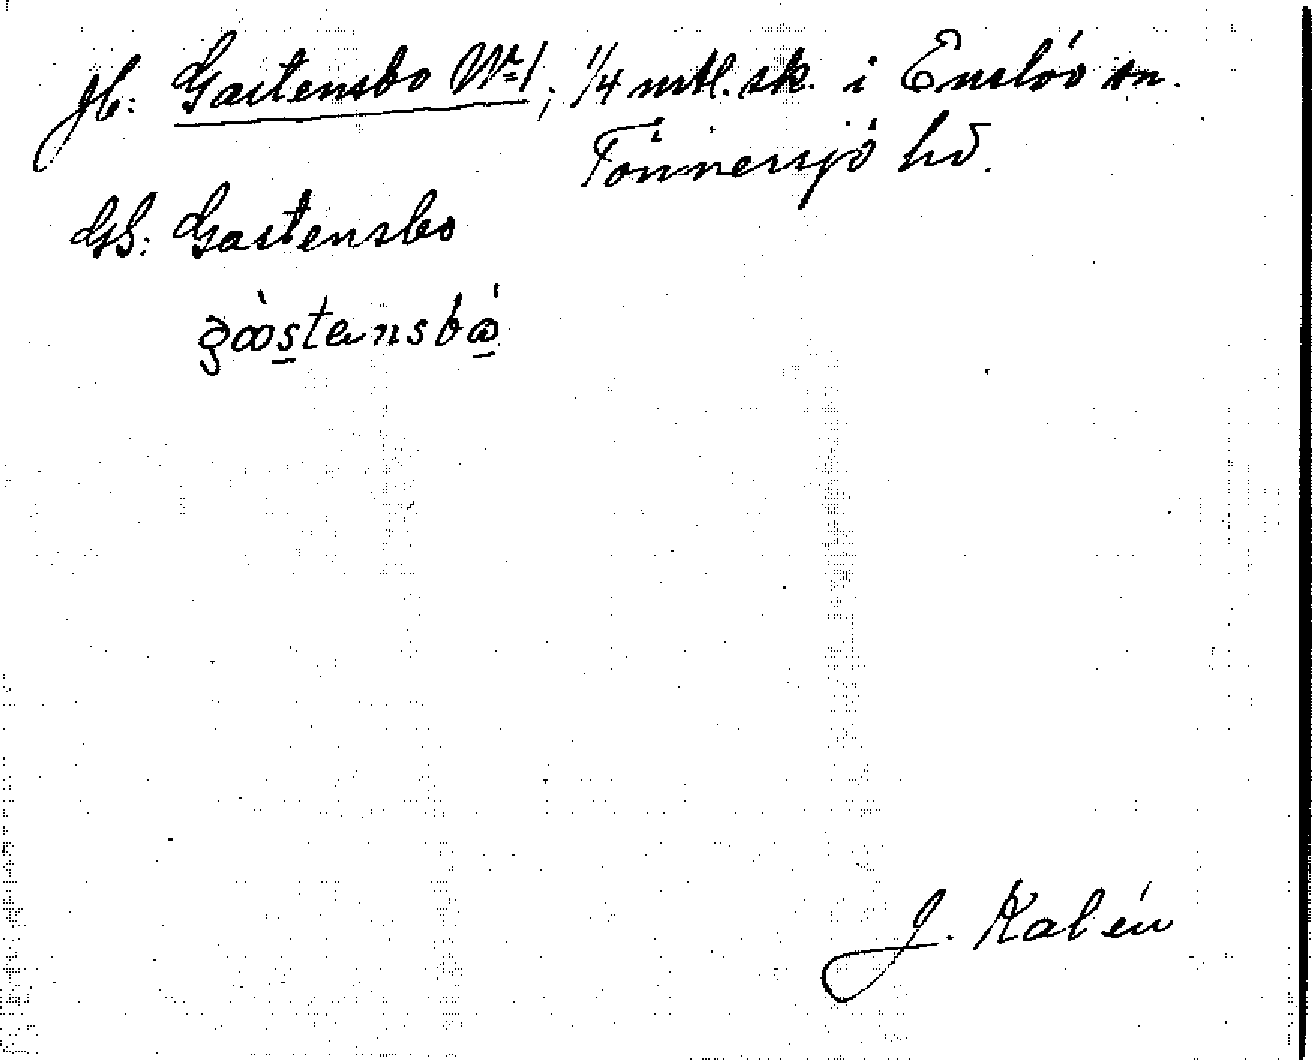 Jb: Gastensbo Nr 1; 1/4 mtl. sk. i Enslöv sn.
Tönnersjö hd.
GS: Gastensbo
J. Kalén